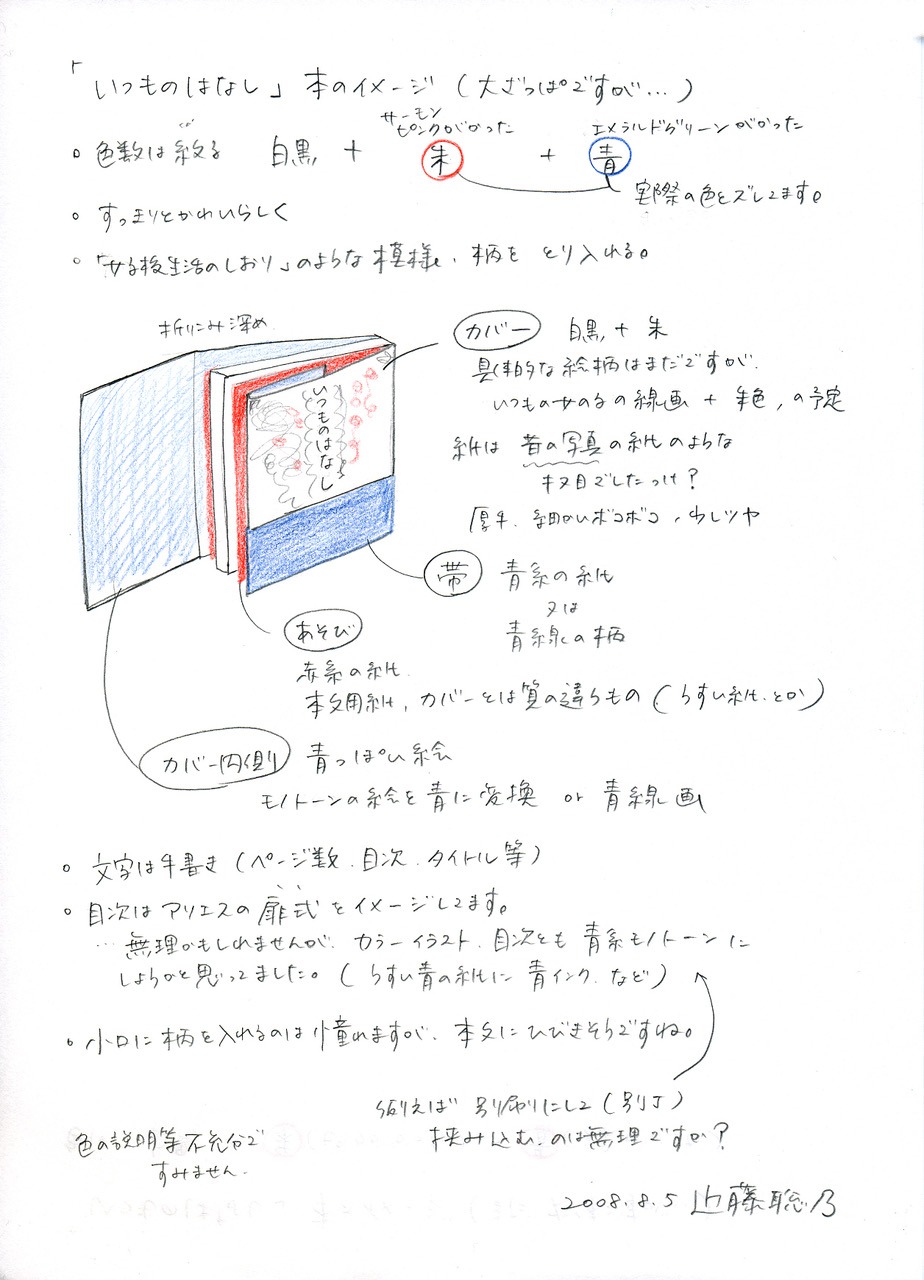 「いつものはなし」 本のイメージ (大ざっぱですが…)
サーモンピンクがかった
エメラルドグリーンがかった
。色数は絞る 白黒 + 朱 + 青
実際の色とズレてます。
。すっきりとかわいらしく
。「女学校生活のしおり」のような模様、柄をとり入れる。
折りこみ深め
カバー 白黒 + 朱
具体的な絵柄はまだですが、
いつもの女の子の線画 + 朱色、の予定
紙は 昔の写真の紙のような
キヌ目でしたっけ?
厚手、細かいボコボコ、少しツヤ
いつものはなし
帯 青系の紙
又は
青線の柄
あそび
赤系の紙
本文用紙、カバーとは質の違うもの (うすい紙、とか)
カバー内側 青っぽい絵
モノトーンの絵を青に変換 or 青線画
。文字は手書き (ページ数、目次、タイトル等)
。目次はアリエスの扉式をイメージしてます。
…無理かもしれませんが、カラーイラスト、目次とも 青系モノトーンに
しようかと思ってました。(うすい青の紙に 青インク、など)
。小口に柄を入れるのは憧れますが、本文にひびきそうですね。
例えば 別刷りにして (別丁)
挟み込む、のは無理ですか?
色の説明等不充分で
すみません。
2008.8.5 近藤聡乃